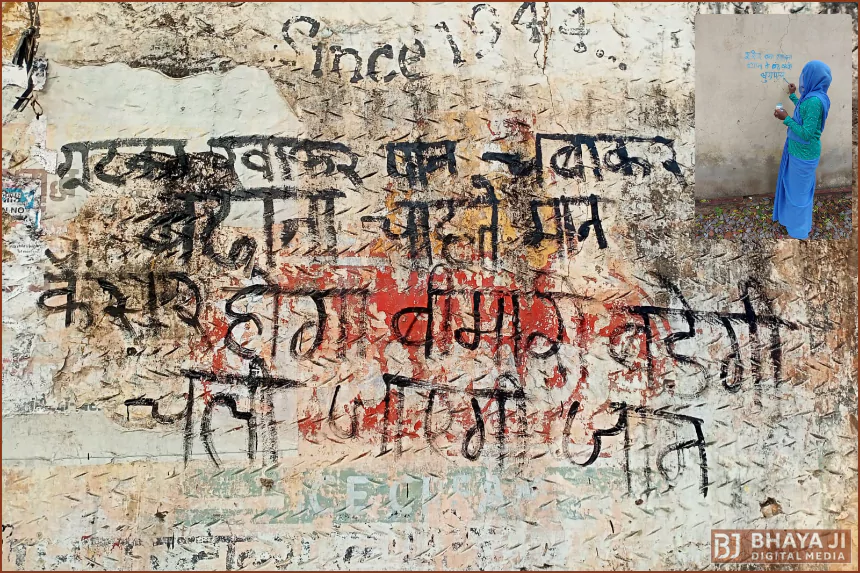 Since 1944
गूटका खवाकर पान चबाकर
बढ़ाना चाहते मान
कैंसर होगा बीमारी बडेगी
चली जाएगी जान
NO
BJ BHAYA JI
DIGITAL MEDIA